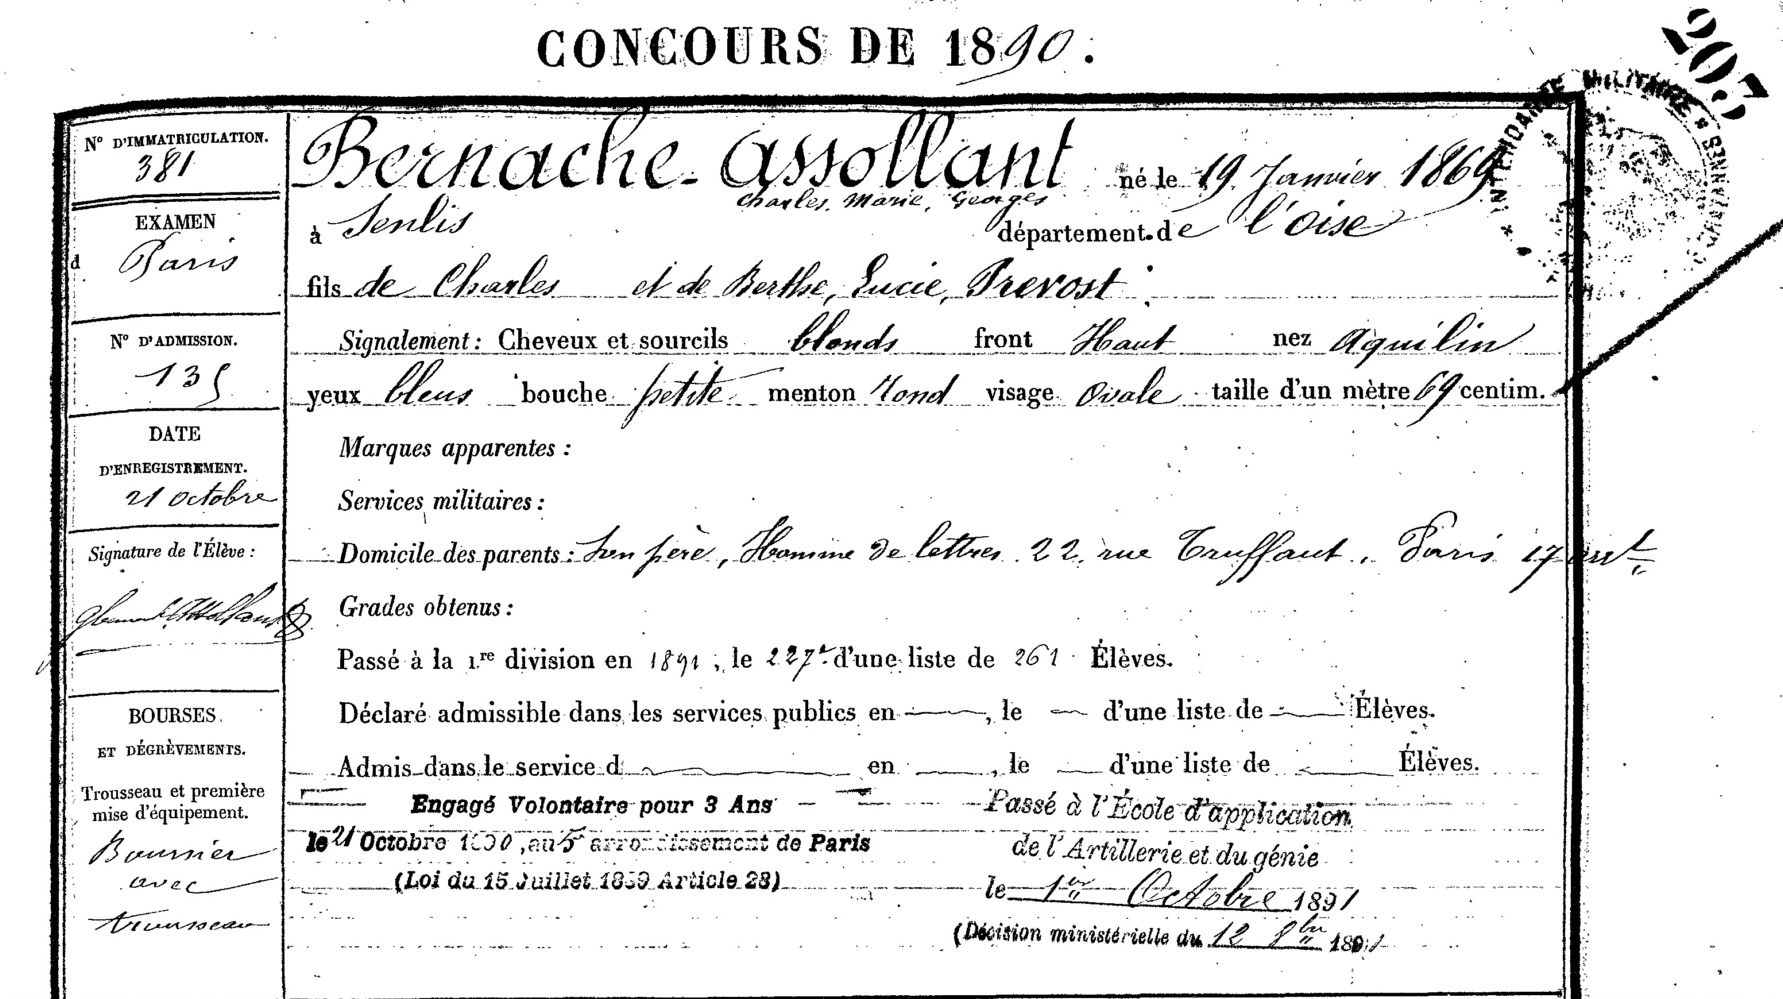 CONCOURS DE 1890.
207
INTENDANCE MILITAIRE
N° D'IMMATRICULATION.
381
EXAMEN
à Paris
N° D'ADMISSION.
135
DATE
D'ENREGISTREMENT.
21 Octobre
Signature de l'Élève :
BOURSES
ET DÉGRÈVEMENTS.
Trousseau et première
mise d'équipement.
Boursier
avec
trousseau
Bernache-Assollant né le 19 Janvier 1869
Charles, Marie, Georges
à Senlis département de l'Oise
fils de Charles et de Berthe, Lucie, Prevost
Signalement : Cheveux et sourcils blonds front Haut nez Aquilin
yeux bleus bouche petite menton rond visage Ovale taille d'un mètre 69 centim.
Marques apparentes :
Services militaires :
Domicile des parents : Son père, Homme de lettres. 22, rue Truffaut, Paris 17 arr.t
Grades obtenus :
Passé à la 1.re division en 1891, le 227e d'une liste de 261 Élèves.
Déclaré admissible dans les services publics en —, le — d'une liste de — Élèves.
Admis dans le service d — en —, le — d'une liste de — Élèves.
Engagé Volontaire pour 3 Ans
le 21 Octobre 1890, au 5e arrondissement de Paris
(Loi du 15 Juillet 1889 Article 28)
Passé à l'École d'application
de l'Artillerie et du génie
le 1er Octobre 1891
(Décision ministérielle du 12 8bre 1891